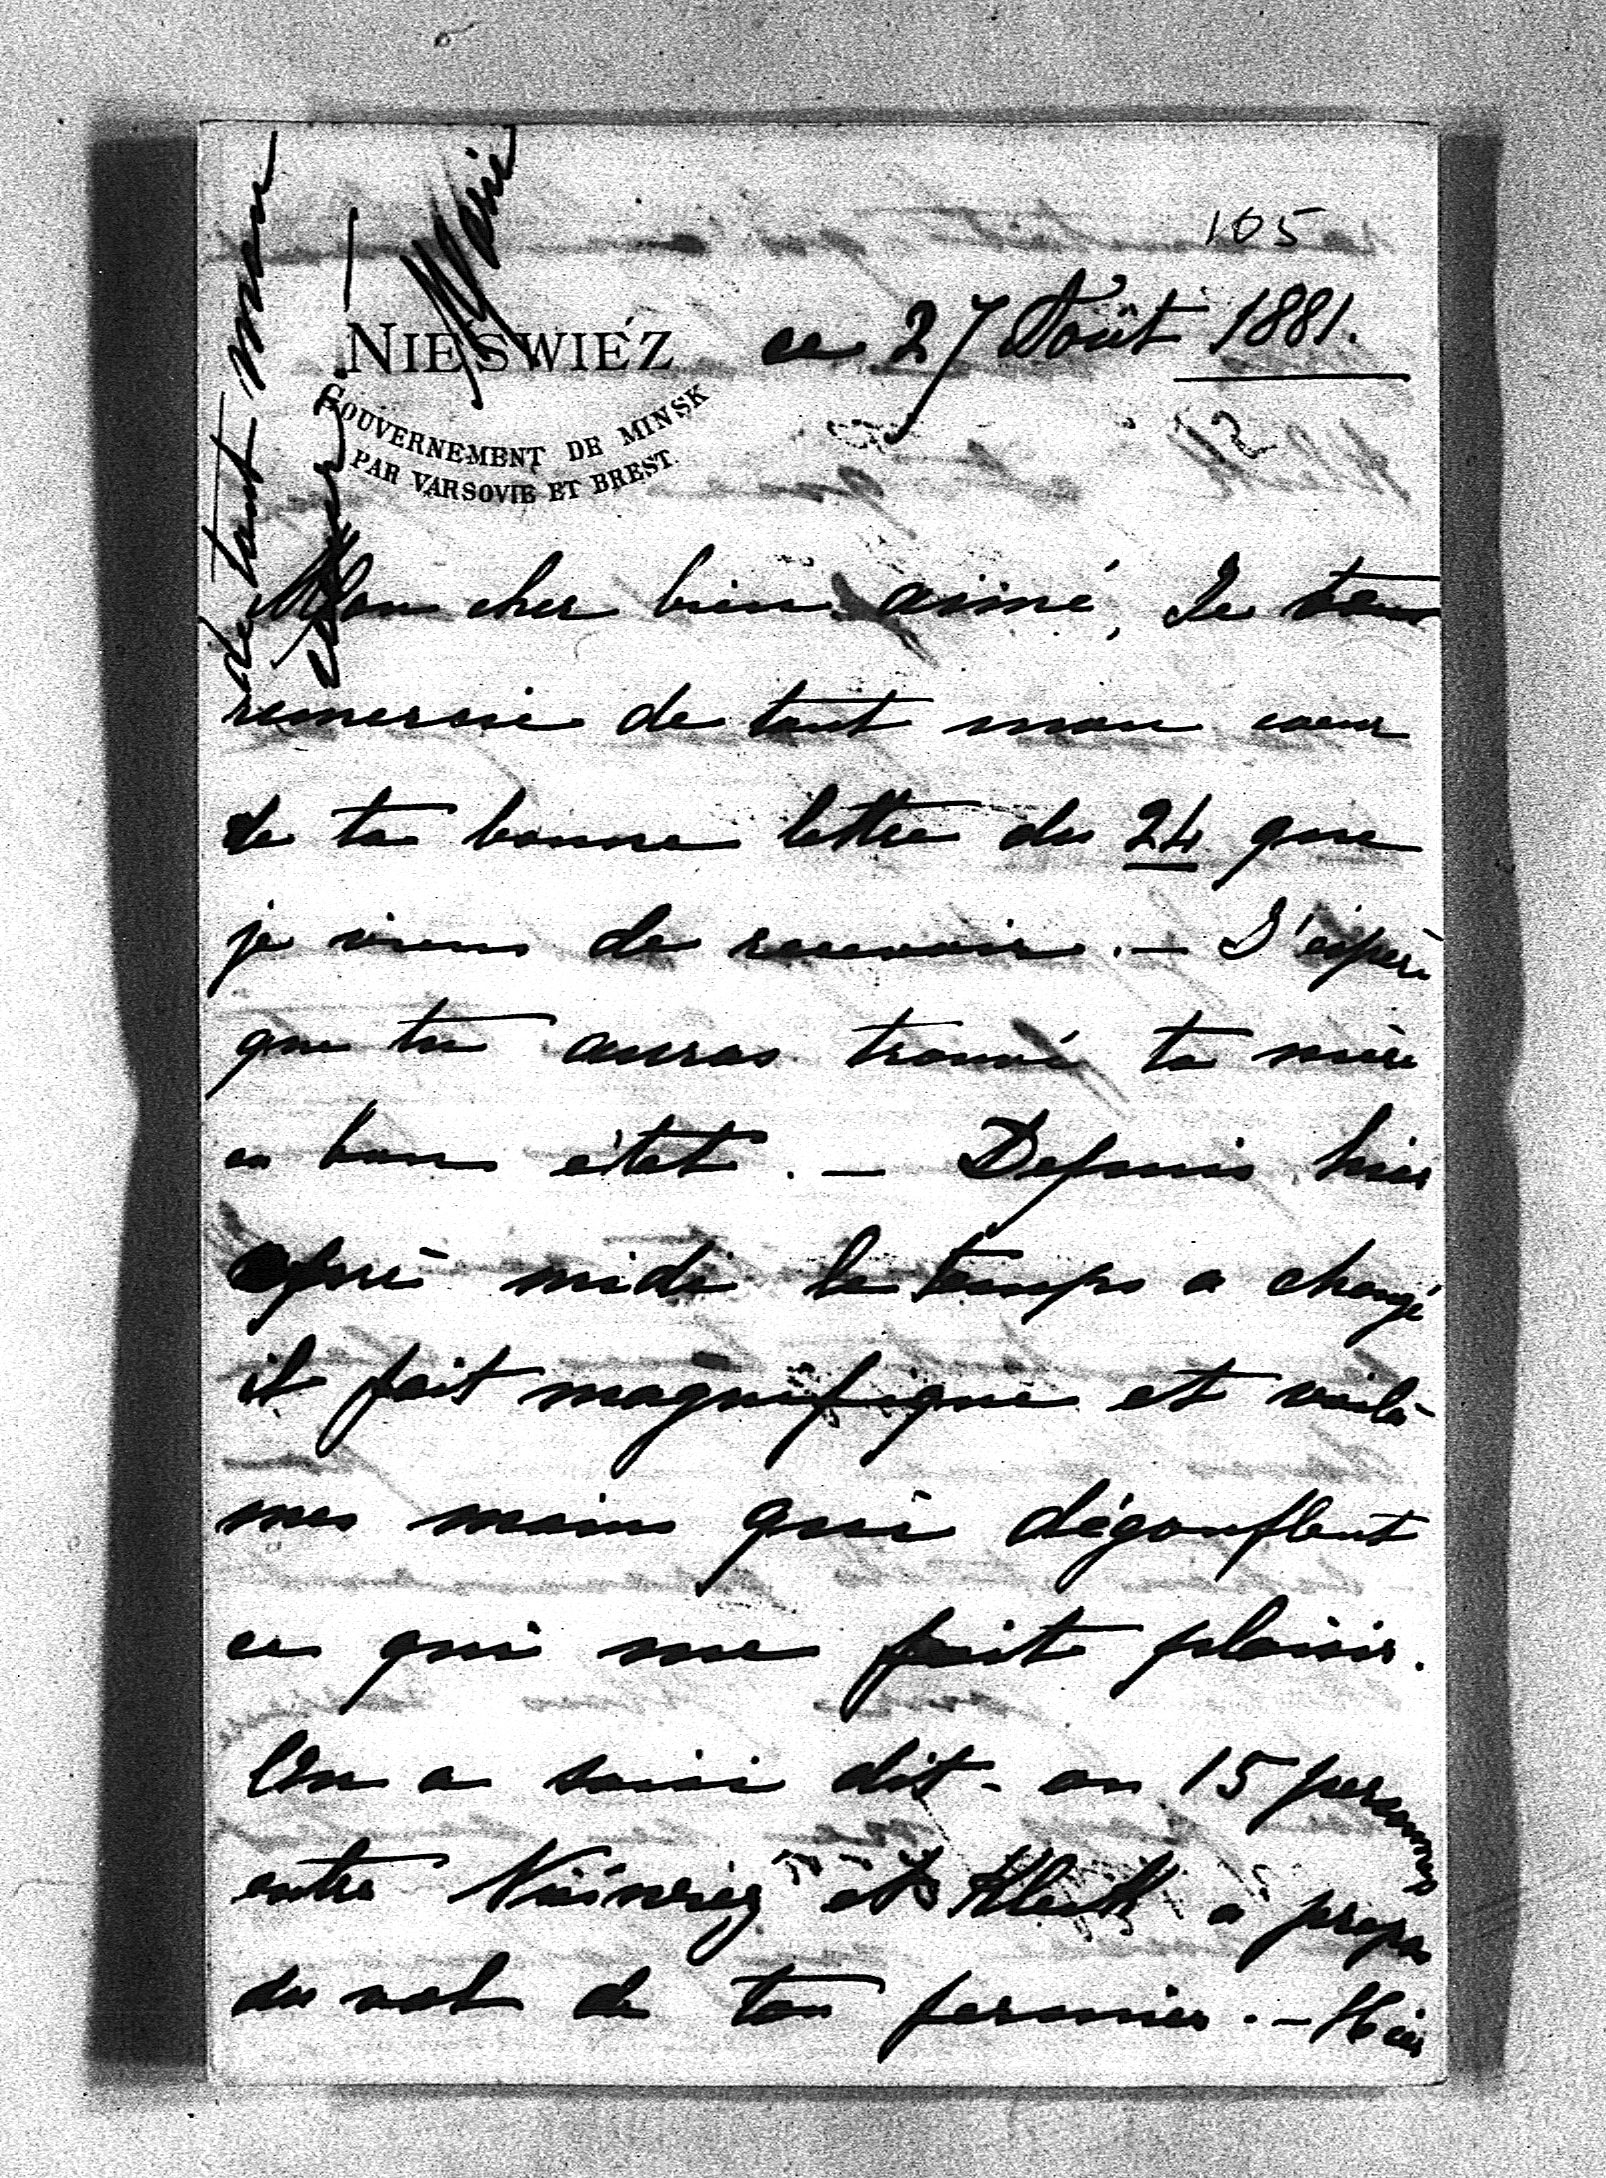 105
NIEŚWIEZ ce 27 Août 1881.
GOUVERNEMENT DE MINSK
PAR VARSOVIE ET BREST.
Mon cher bien aimé, Je te
remercie de tout mon coeur
de ta bonne lettre du 24 que
je viens de recevoir. — J'espère
que tu auras trouvé ta mère
en bon état. — Depuis hier
après midi le temps a changé
il fait magnifique et voilà
mes mains qui dégonflent
ce qui me fait plaisir.
On a saisi dit-on 15 personnes
entre Nieświez et Kletzk a propos
du vol de ton fermier. — Hier
de tout mon
coeur. —
Marie